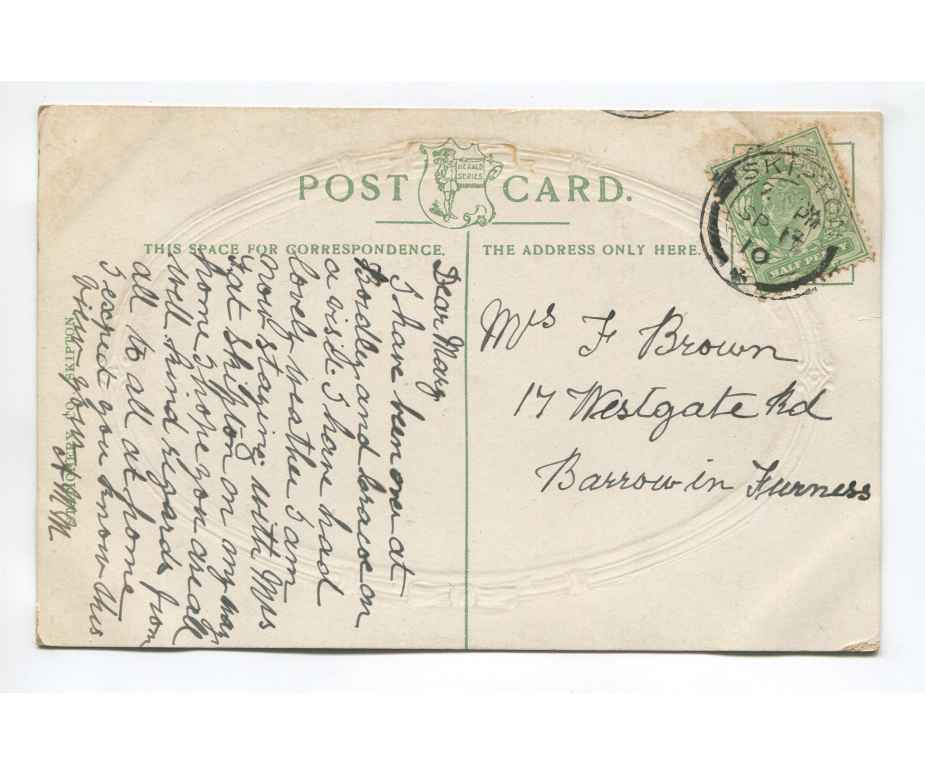 POST CARD.
HERALD
SERIES
THIS SPACE FOR CORRESPONDENCE.
THE ADDRESS ONLY HERE.
SKIPTON
PM
SP 14
10
HALF PENNY
Mrs F Brown
17 Westgate Rd
Barrow in Furness
Dear Mary
I have been over at
and on
a visit. I have had
lovely weather I am
now staying with Mrs
at Skipton on my way
home I hope you are all
well kind regards from
all to all at home
I expect you know this
SKIPTON